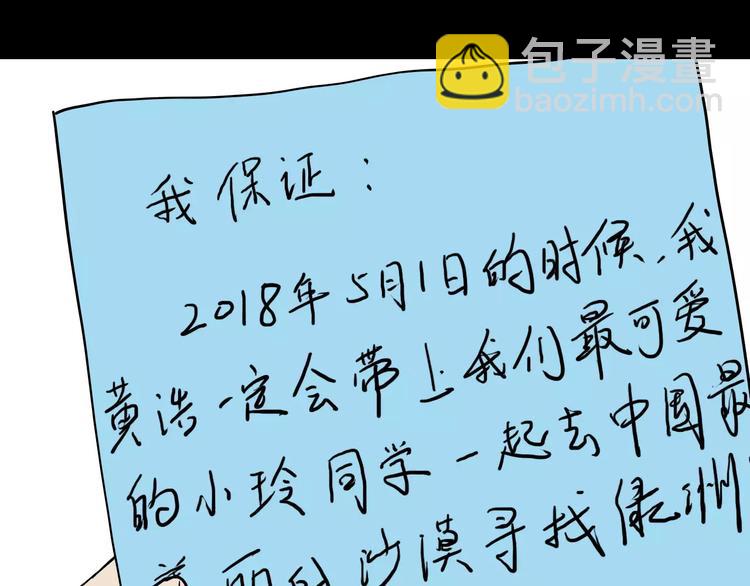 包子漫畫
baozimh.com
我保证：
2018年5月1日的时候，我
黄浩一定会带上我们最可爱
的小玲同学一起去中国最
美丽的沙漠寻找